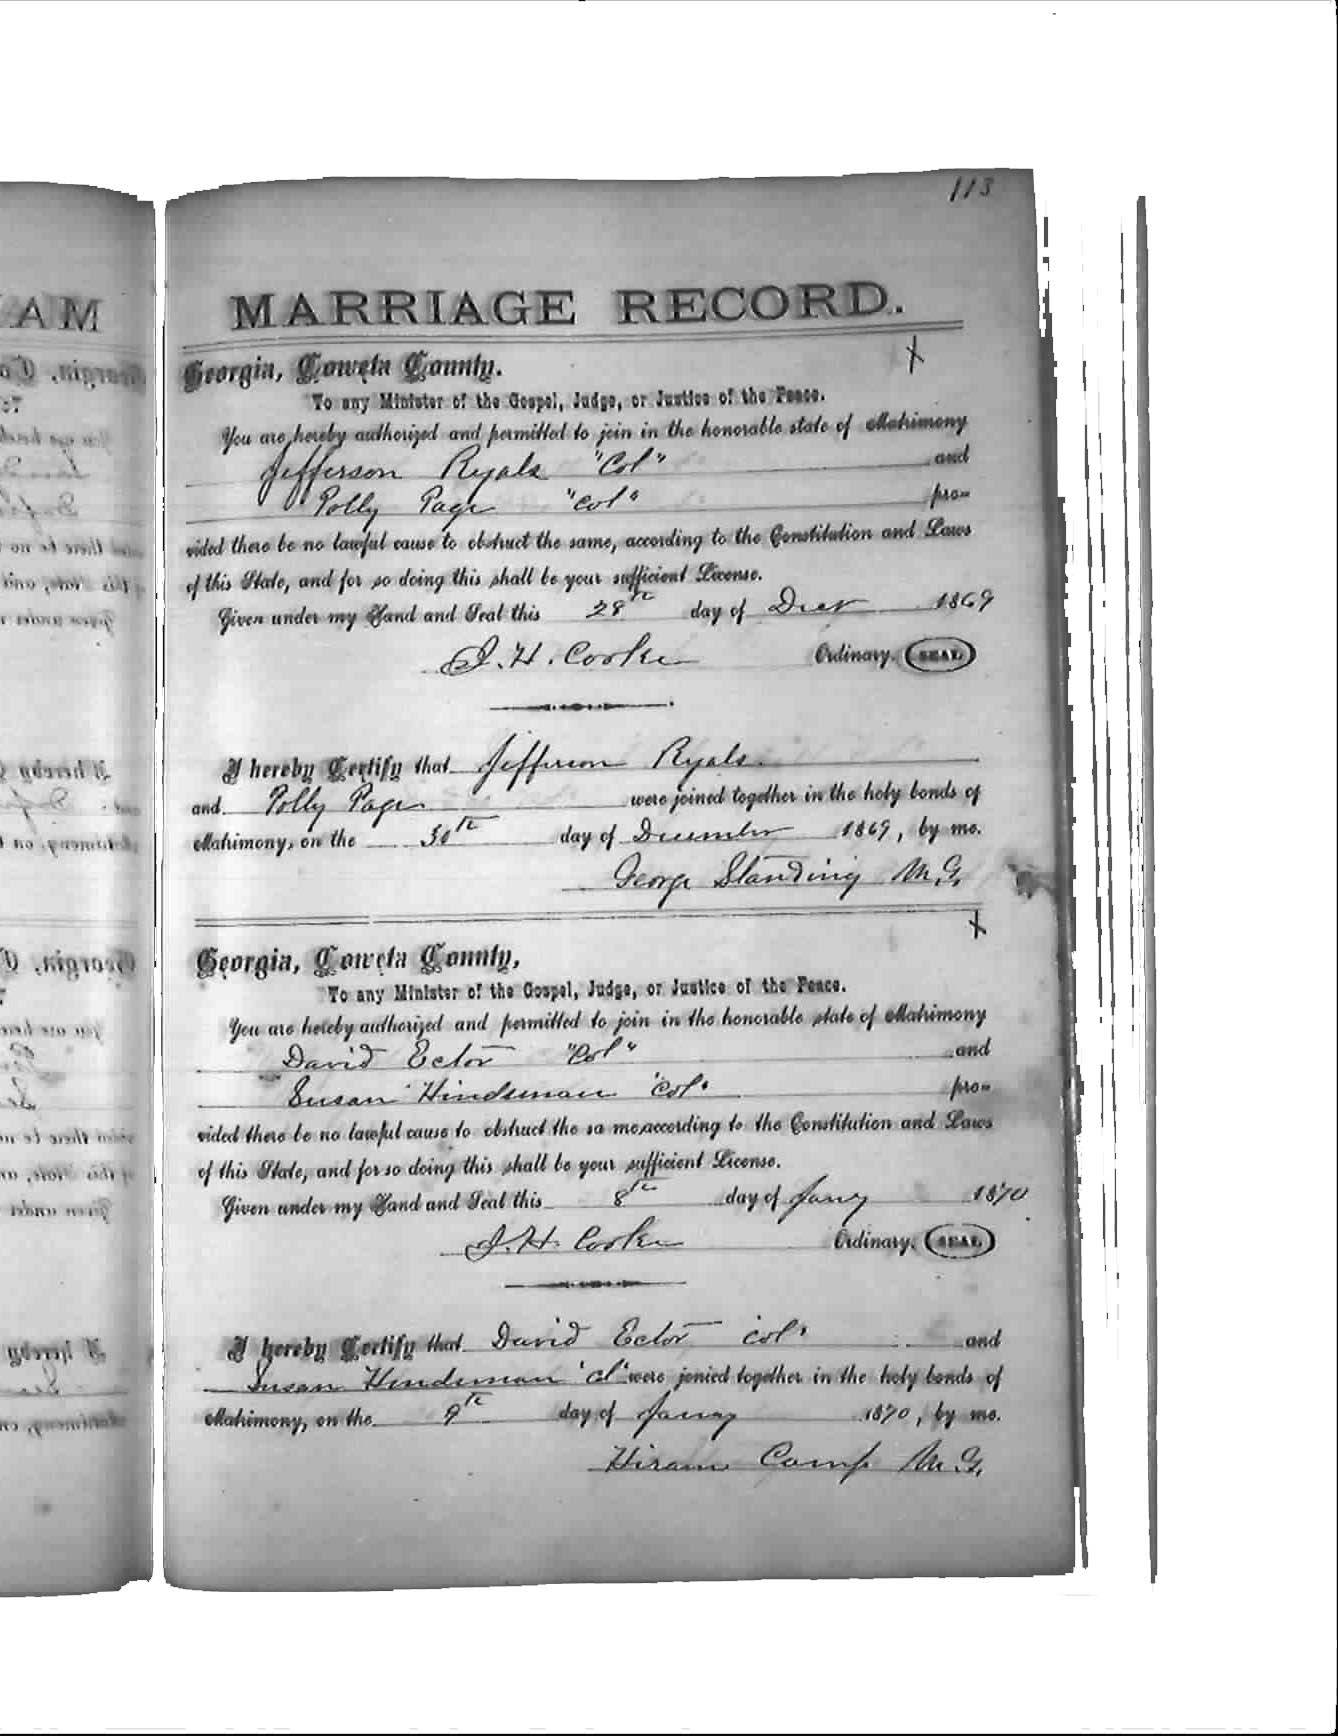 113
MARRIAGE RECORD.
X
Georgia, Coweta County.
To any Minister of the Gospel, Judge, or Justice of the Peace.
You are hereby authorized and permitted to join in the honorable state of Matrimony
Jefferson Ryals "Col" and
Polly Page "Col" pro-
vided there be no lawful cause to obstruct the same, according to the Constitution and Laws
of this State, and for so doing this shall be your sufficient License.
Given under my Hand and Seal this 28th day of Decr 1869
J. H. Cooke Ordinary. SEAL
I hereby Certify that Jefferson Ryals
and Polly Page were joined together in the holy bonds of
Matrimony, on the 30th day of December 1869, by me.
George Standing M.G.
X
Georgia, Coweta County,
To any Minister of the Gospel, Judge, or Justice of the Peace.
You are hereby authorized and permitted to join in the honorable state of Matrimony
David Ector "Col" and
Susan Hindsman "Col" pro-
vided there be no lawful cause to obstruct the sa me,according to the Constitution and Laws
of this State, and for so doing this shall be your sufficient License.
Given under my Hand and Seal this 8th day of Jany 1870
J. H. Cooke Ordinary. SEAL
I hereby Certify that David Ector col' and
Susan Hindsman 'cl' were jonied together in the holy bonds of
Matrimony, on the 9th day of Janry 1870, by me.
Hiram Camp M.G.